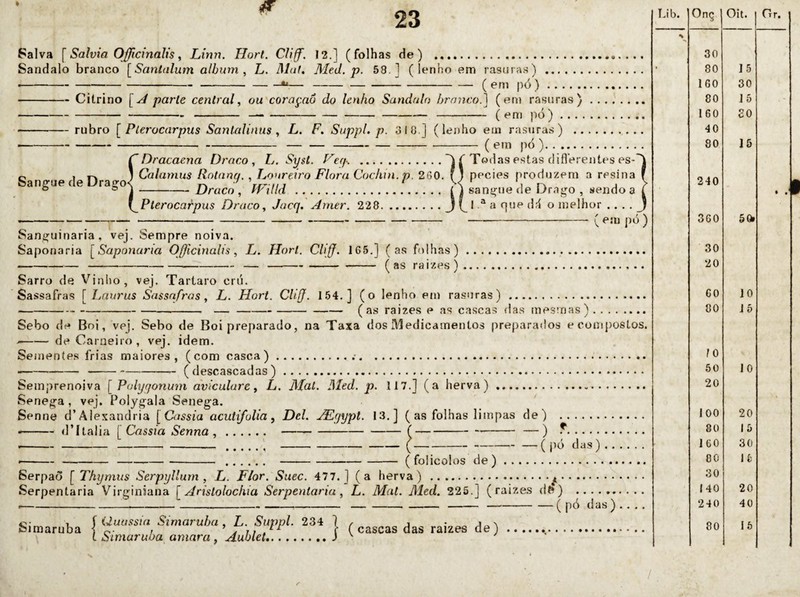 23
Lib. Onç. Oit. Gr.
Salva [ Salvia Officinalis, Linn. Hort. Cliff. 12.] (folhas de) .......... 30
Sandalo branco [Santalum album, L. Mat. Med. p. 58. ] (lenho em rasuras) .......... 80 15
——— (em pó) .......... 160 30
——— Citrino [A parte central, ou coraçaõ do lenho Sandalo branco.] (em rasuras) .......... 80 15
——— (em pó) .......... 160 30
——— rubro [ Pterocarpus Santalinus, L. F. Suppl. p. 318.] (lenho em rasuras) .......... 40
——— (em pó) .......... 80 15
Sangue de Drago { Dracaena Draco, L. Syst. Veg. .......... } { Todas estas differentes es-
Calamus Rotang., Loureiro Flora Cochin. p. 260. pecies produzem a resina
——— Draco, Willd .......... sangue de Drago, sendo a 240
Pterocarpus Draco, Jacq. Amer. 228. .......... 1.ª a que dá o melhor .... }
——— (em pó) 360 50
Sanguinaria, vej. Sempre noiva.
Saponaria [Saponaria Officinalis, L. Hort. Cliff. 165.] (as folhas) .......... 30
——— (as raizes) .......... 20
Sarro de Vinho, vej. Tartaro crú.
Sassafras [ Laurus Sassafras, L. Hort. Cliff. 154. ] (o lenho em rasuras) .......... 60 10
——— (as raizes e as cascas das mesmas) .......... 80 15
Sebo de Boi, vej. Sebo de Boi preparado, na Taxa dos Medicamentos preparados e compostos.
——— de Carneiro, vej. idem.
Sementes frias maiores, (com casca) .......... 10
——— (descascadas) .......... 50 10
Semprenoiva [ Polygonum aviculare, L. Mat. Med. p. 117.] (a herva) .......... 20
Senega, vej. Polygala Senega.
Senne d'Alexandria [Cassia acutifolia, Del. Ægypt. 13. ] (as folhas limpas de) .......... 100 20
——— d'Italia [ Cassia Senna, ...... ——— (———) .......... 80 15
——— ...... ——— (——— (pó das) ...... 160 30
——— ...... ——— (foliculos de) .......... 80 15
Serpaõ [ Thymus Serpyllum, L. Flor. Suec. 477. ] (a herva) .......... 30
Serpentaria Virginiana [Aristolochia Serpentaria, L. Mat. Med. 225.] (raizes de) .......... 140 20
——— (pó das) .... 240 40
Simaruba { Quassia Simaruba, L. Suppl. 234 } (cascas das raizes de) .......... 80 15
Simaruba amara, Aublet. ........ }